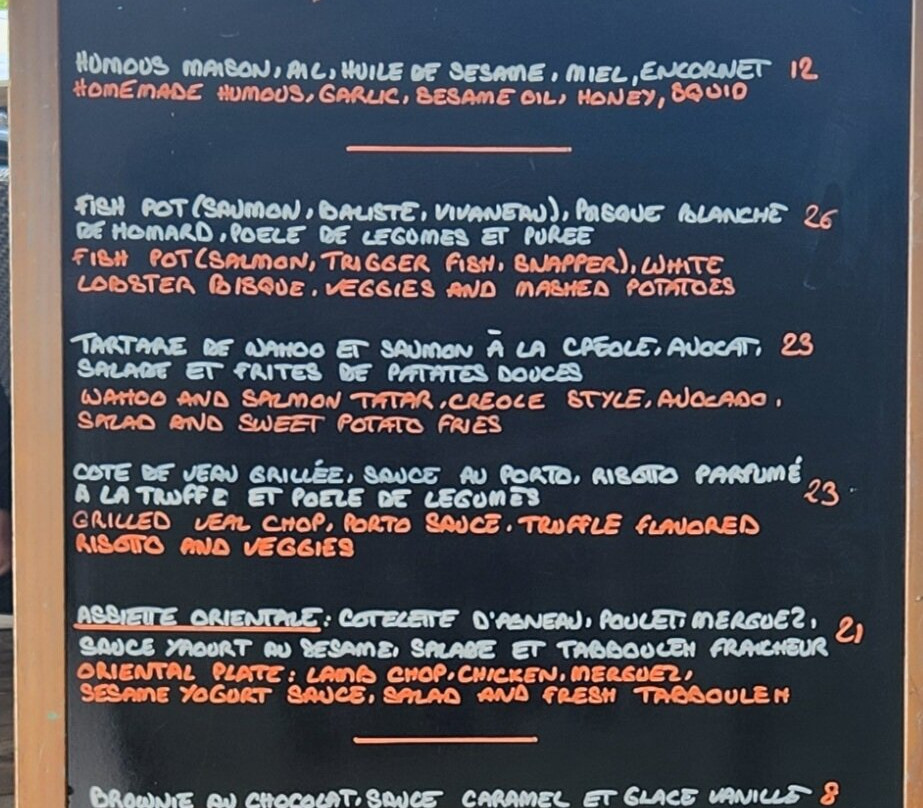 HUMOUS MAISON, AIL, HUILE DE SESAME, MIEL, ENCORNET 12
HOMEMADE HUMOUS, GARLIC, SESAME OIL, HONEY, SQUID
FISH POT (SAUMON, BALISTE, VIVANEAU), BISQUE BLANCHE 26
DE HOMARD, POELE DE LEGUMES ET PUREE
FISH POT (SALMON, TRIGGER FISH, SNAPPER), WHITE
LOBSTER BISQUE, VEGGIES AND MASHED POTATOES
TARTARE DE WAHOO ET SAUMON À LA CREOLE, AVOCAT, 23
SALADE ET FRITES DE PATATES DOUCES
WAHOO AND SALMON TATAR, CREOLE STYLE, AVOCADO,
SALAD AND SWEET POTATO FRIES
COTE DE VEAU GRILLÉE, SAUCE AU PORTO, RISOTTO PARFUMÉ
À LA TRUFFE ET POELE DE LEGUMES 23
GRILLED VEAL CHOP, PORTO SAUCE, TRUFFLE FLAVORED
RISOTTO AND VEGGIES
ASSIETTE ORIENTALE: COTELETTE D'AGNEAU, POULET, MERGUEZ,
SAUCE YAOURT AU SESAME, SALADE ET TABBOULEH FRAICHEUR 21
ORIENTAL PLATE: LAMB CHOP, CHICKEN, MERGUEZ,
SESAME YOGURT SAUCE, SALAD AND FRESH TABBOULEH
BROWNIE AU CHOCOLAT, SAUCE CARAMEL ET GLACE VANILLE 8